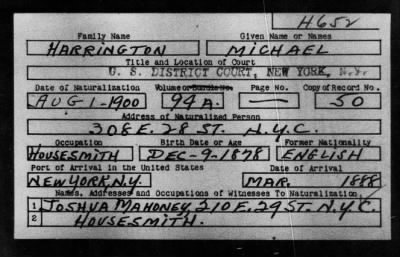 H652
Family Name Given Name or Names
HARRINGTON MICHAEL
Title and Location of Court
U. S. DISTRICT COURT, NEW YORK,
Date of Naturalization Volume or Bundle No. Page No. Copy of Record No.
AUG 1-1900 94A. — 50
Address of Naturalized Person
308 E. 28 ST. N.Y.C.
Occupation Birth Date or Age Former Nationality
HOUSESMITH DEC-9-1878 ENGLISH
Port of Arrival in the United States Date of Arrival
NEW YORK, N.Y. MAR. 1888
Names, Addresses and Occupations of Witnesses To Naturalization
1 JOSHUA MAHONEY 210 E. 29 ST. N.Y.C.
2 HOUSESMITH.